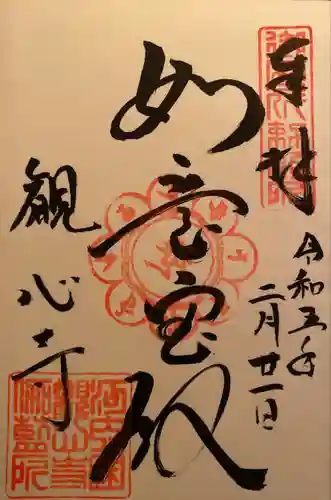 奉拝
令和五年
二月廿一日
如意宝殿
観心寺